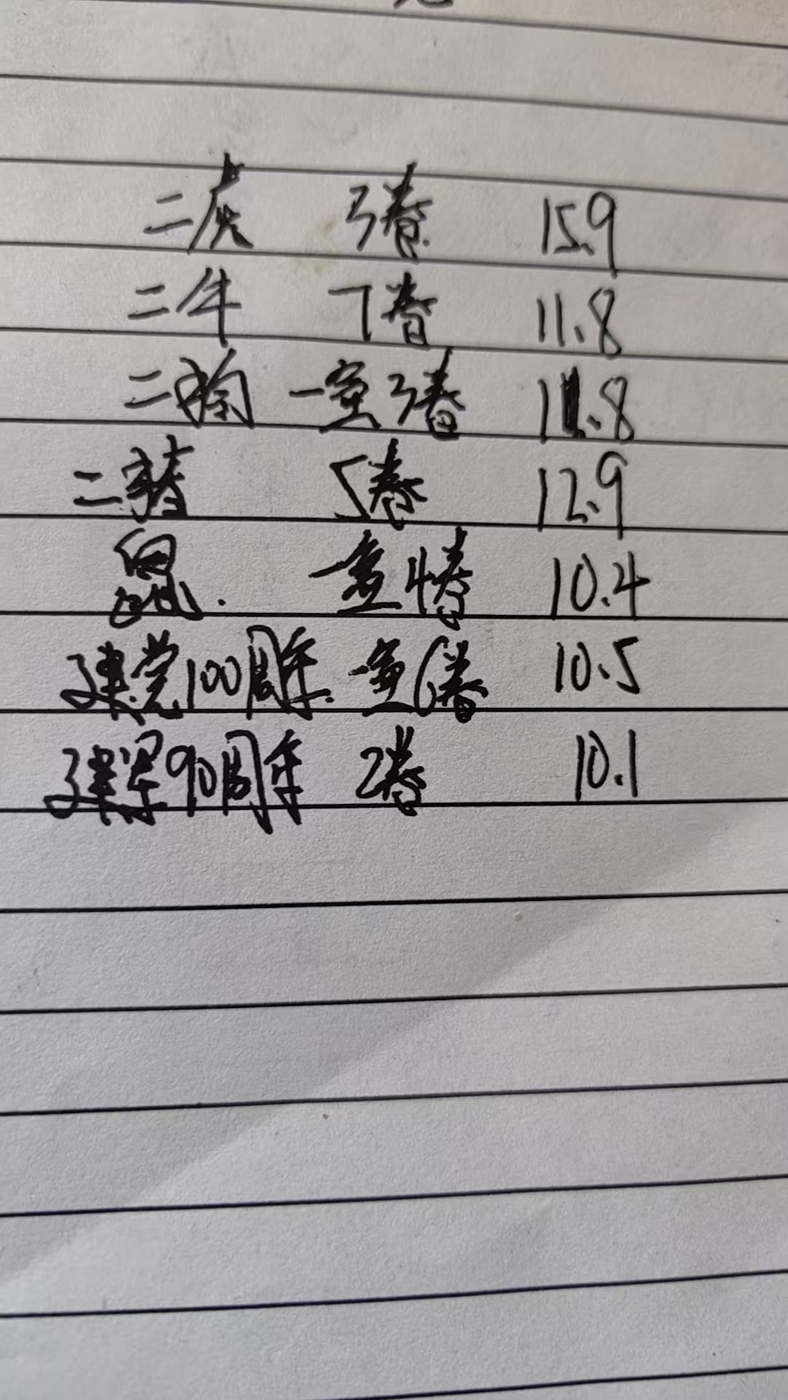 二虎 3卷 15.9
二牛 7卷 11.8
二狗 一盒3卷 11.8
二猪 5卷 12.9
鼠. 一盒4卷 10.4
建党100周年 一盒6卷 10.5
建军90周年 2卷 10.1